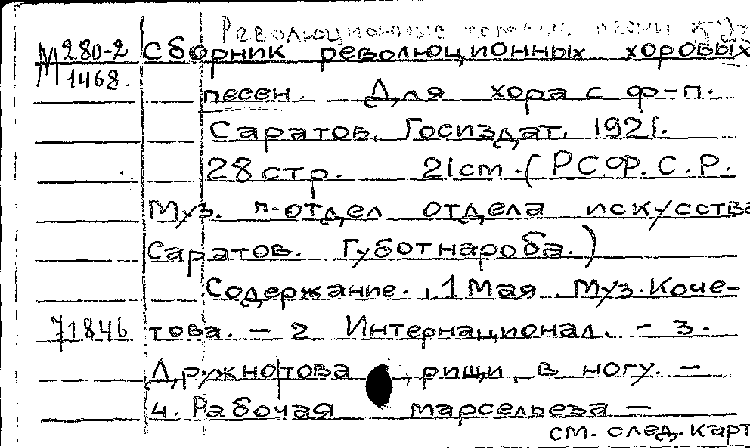 Революционные песни
М 280-2
1468.
Сборник революционных хоровых
песен. Для хора с ф-п.
Саратов. Госиздат. 1921.
28 стр. 21 cm. (Р.С.Ф.С.Р.
Муз. п-отдел отдела искусства
Саратов. Губотнароба.)
Содержание. 1 Мая. Муз. Коче-
71846 това. - 2 Интернационал. - 3.
Дружно това рищи в ногу. -
4. Рабочая марсельеза -
см. след. карт